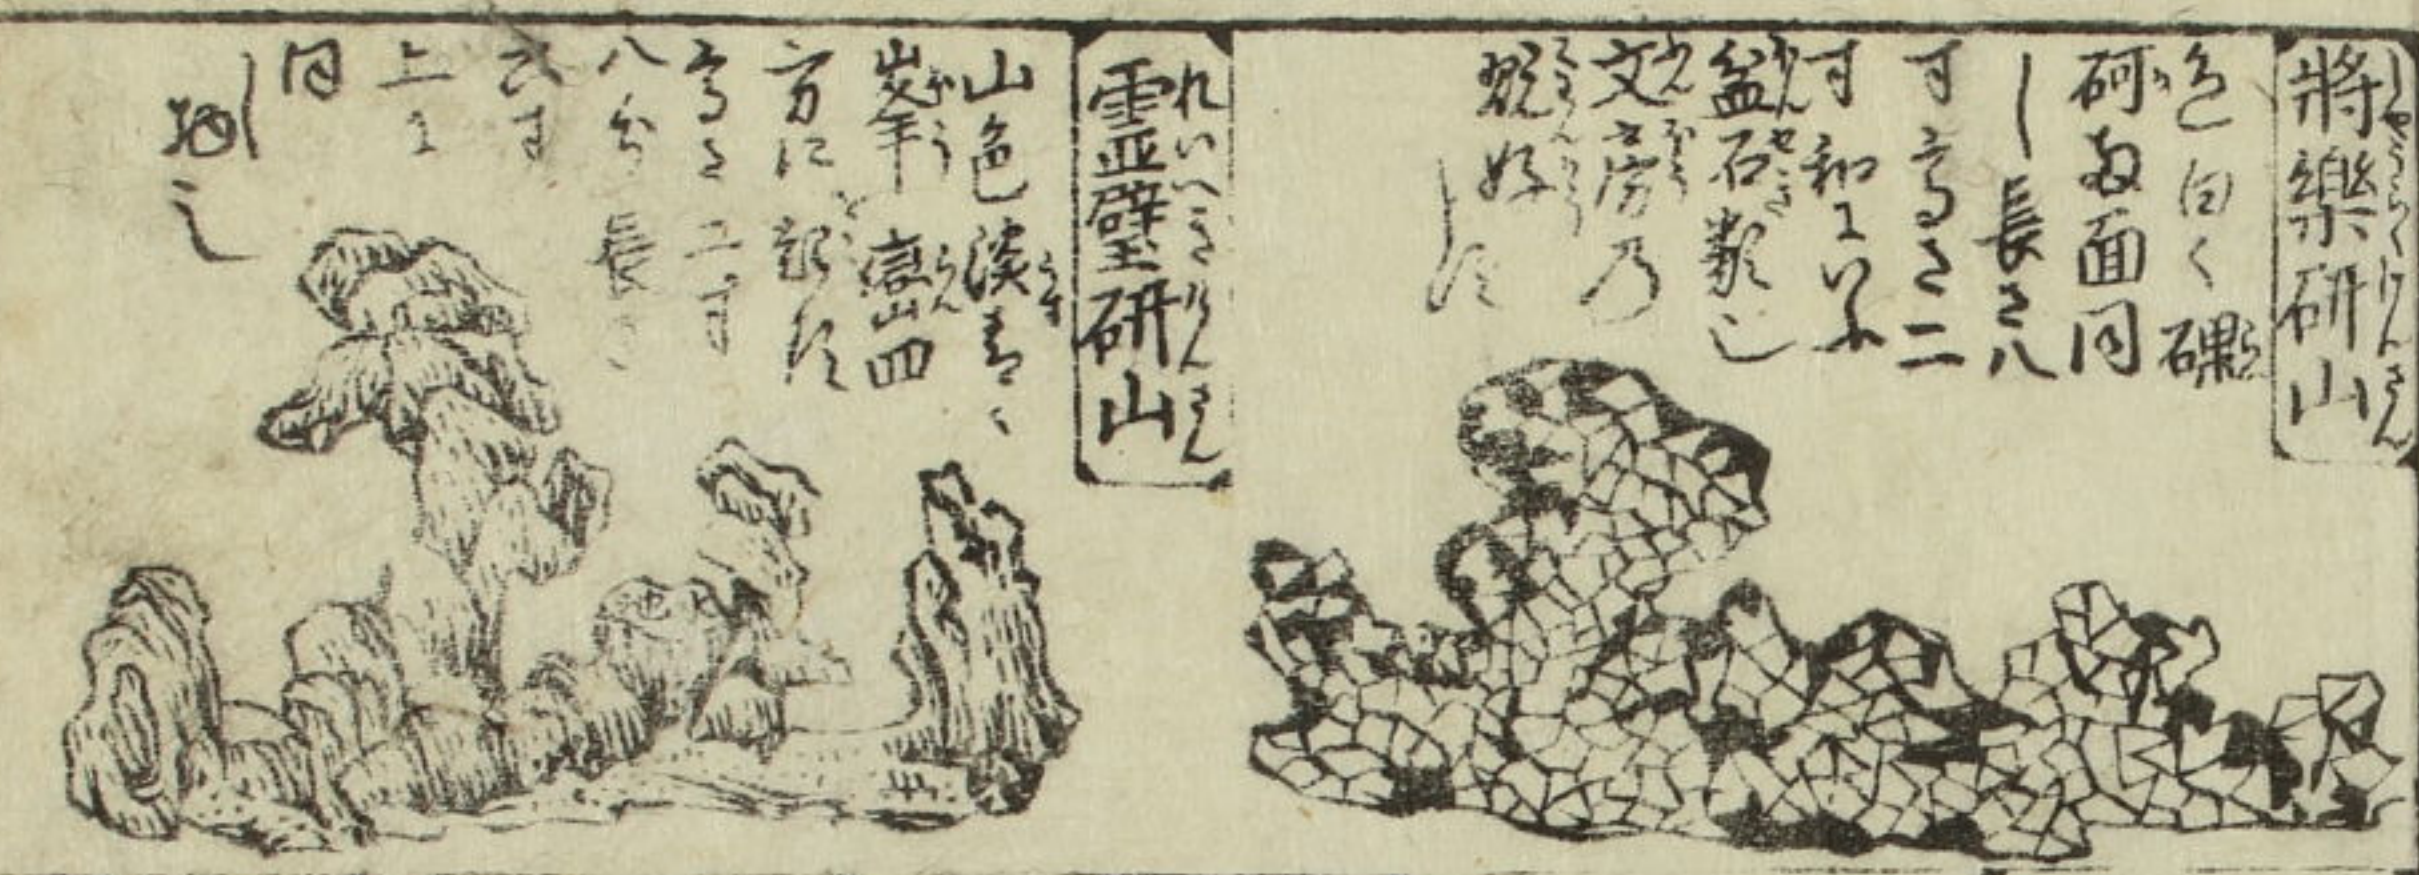 將樂研山
しやうらくけんさん
色白く磥
砢両面同
し長さ八
寸高さ二
寸和にいふ
盆石類也
文房乃
翫好とす
霊璧研山
れいへきけんさん
山色淡青く
峯巒四
方に起す
高さ二寸
八分長さ
弐寸
上に
同
し